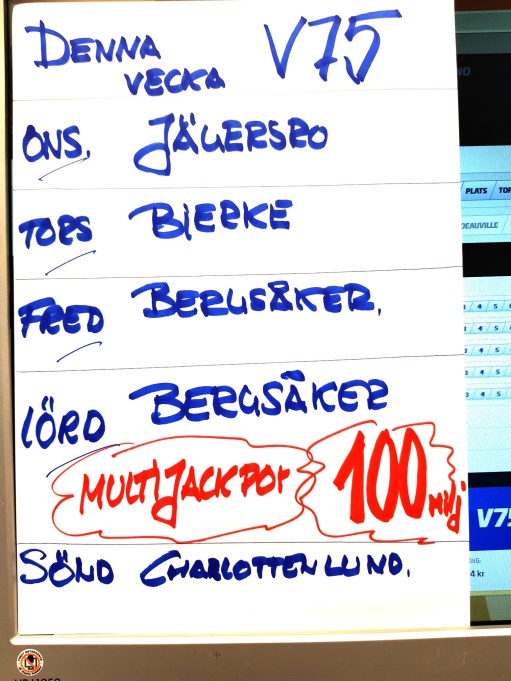 DENNA V75
VECKA
ONS. JÄGERSRO
TORS BJERKE
FRED BERGSÅKER.
LÖRD BERGSÅKER
MULTIJACKPOT 100 milj
SÖND CHARLOTTENLUND.
PLATS
DEAUVILLE
3 4 5
3 4 5
3 4 5
3 4 5
V75
4 kr